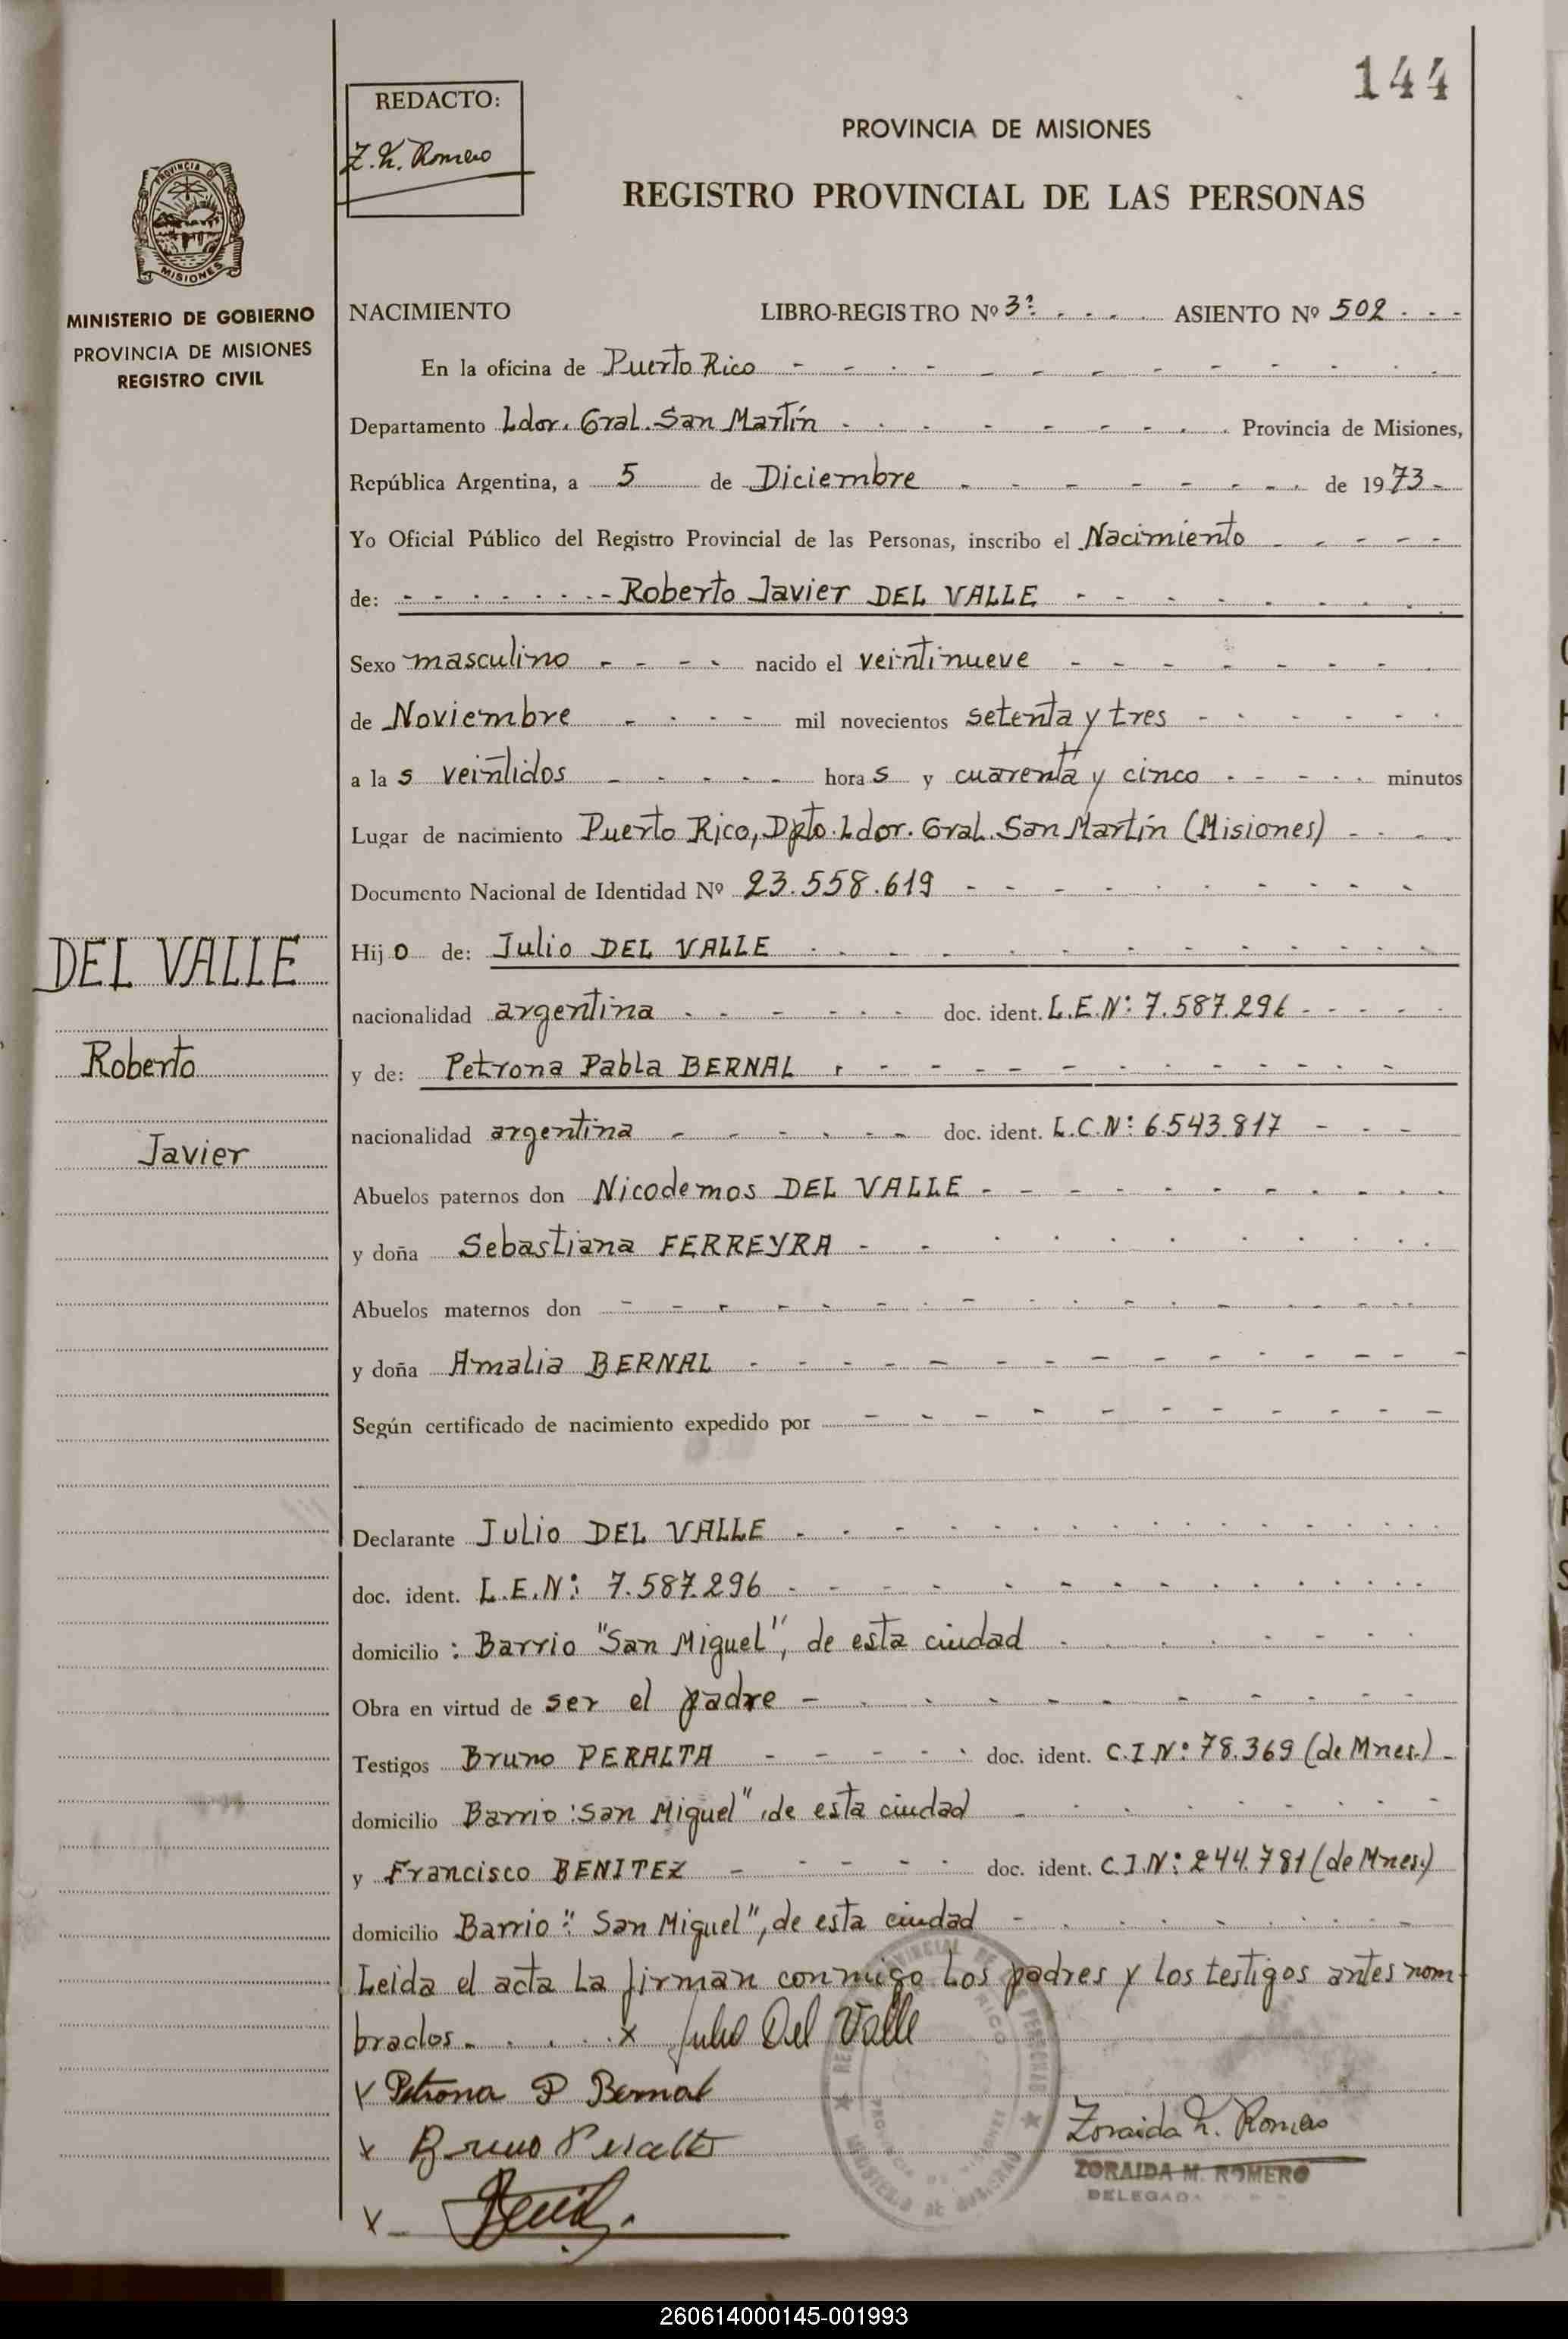 144
REDACTO:
Z. M. Romero
PROVINCIA DE MISIONES
REGISTRO PROVINCIAL DE LAS PERSONAS
PROVINCIA DE
MISIONES
MINISTERIO DE GOBIERNO
PROVINCIA DE MISIONES
REGISTRO CIVIL
NACIMIENTO LIBRO-REGISTRO Nº 3º ASIENTO Nº 502
En la oficina de Puerto Rico
Departamento Ldor. Gral. San Martín Provincia de Misiones,
República Argentina, a 5 de Diciembre de 1973
Yo Oficial Público del Registro Provincial de las Personas, inscribo el Nacimiento
de: Roberto Javier DEL VALLE
Sexo masculino nacido el veintinueve
de Noviembre mil novecientos setenta y tres
a la s veintidos hora s y cuarenta y cinco minutos
Lugar de nacimiento Puerto Rico, Dpto. Ldor. Gral. San Martín (Misiones)
Documento Nacional de Identidad Nº 23.558.619
DEL VALLE
Roberto
Javier
Hij o de: Julio DEL VALLE
nacionalidad argentina doc. ident. L.E.Nº: 7.587.296
y de: Petrona Pabla BERNAL
nacionalidad argentina doc. ident. L.C.Nº: 6.543.817
Abuelos paternos don Nicodemos DEL VALLE
y doña Sebastiana FERREYRA
Abuelos maternos don
y doña Amalia BERNAL
Según certificado de nacimiento expedido por
Declarante Julio DEL VALLE
doc. ident. L.E.Nº: 7.587.296
domicilio : Barrio "San Miguel", de esta ciudad
Obra en virtud de ser el padre
Testigos Bruno PERALTA doc. ident. C.I.Nº: 78.369 (de Mnes.)
domicilio Barrio "San Miguel", de esta ciudad
y Francisco BENITEZ doc. ident. C.I.Nº: 244.781 (de Mnes.)
domicilio Barrio "San Miguel", de esta ciudad
Leida el acta la firman conmigo los padres y los testigos antes nom
brados. x Julio Del Valle
x Petrona P Bernal
x Bruno Peralta
x
Zoraida M. Romero
ZORAIDA M. ROMERO
DELEGADA
260614000145-001993